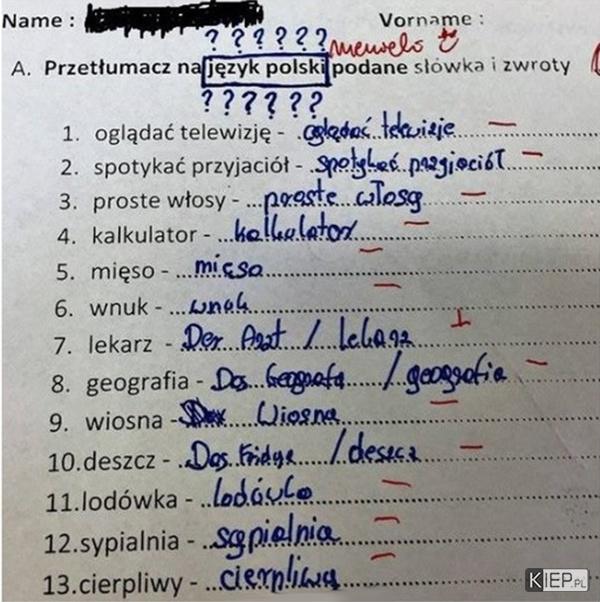 Name : Vorname :
? ? ? ? ? ?
A. Przetłumacz na język polski podane słówka i zwroty
? ? ? ? ? ?
1. oglądać telewizję - oglądać telewizje
2. spotykać przyjaciół - spotykać przyjaciół
3. proste włosy - proste włosy
4. kalkulator - kalkulator
5. mięso - mięso
6. wnuk - wnuk
7. lekarz - Der Azat / lekarz
8. geografia - Das / geografia
9. wiosna - Wiosna
10.deszcz - Das Fridge / deszcz
11.lodówka - lodówka
12.sypialnia - sypialnia
13.cierpliwy - cierpliwy
KIEP.PL